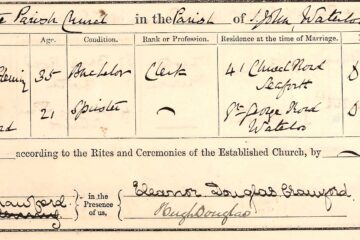 Parish Church in the Parish of St John Waterloo
Age. Condition. Rank or Profession. Residence at the time of Marriage.
35 Bachelor Clerk 41 Church Road
Seaforth
21 Spinster St George Road
Waterloo
according to the Rites and Ceremonies of the Established Church, by
in the Presence of us, Eleanor Douglas Crawford
Hugh Douglas